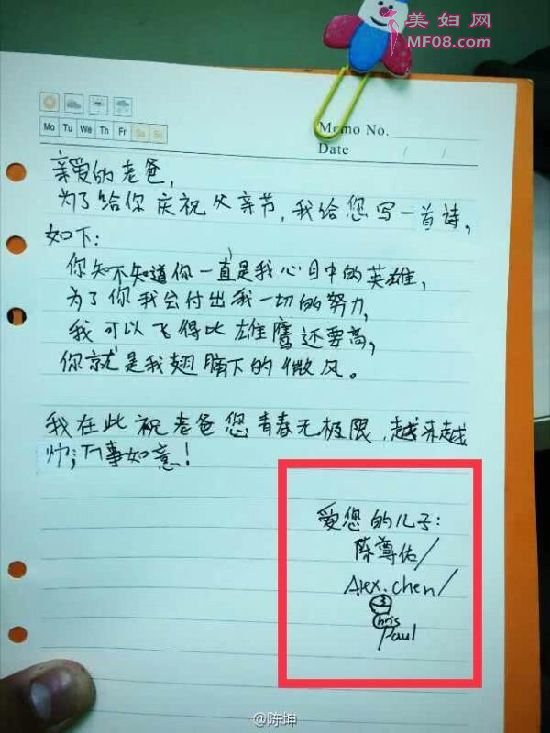 美妇网
MF08.com
Mo Tu We Th Fr Sa Su
Memo No.
Date / /
亲爱的老爸,
为了给你庆祝父亲节,我给您写一首诗,
如下:
你知不知道你一直是我心目中的英雄,
为了你我会付出我一切的努力,
我可以飞得比雄鹰还要高,
你就是我翅膀下的微风。
我在此祝老爸您青春无极限,越来越
帅;万事如意!
爱您的儿子:
陈尊佑/
Alex.chen/
3
Chris
Paul
@陈坤